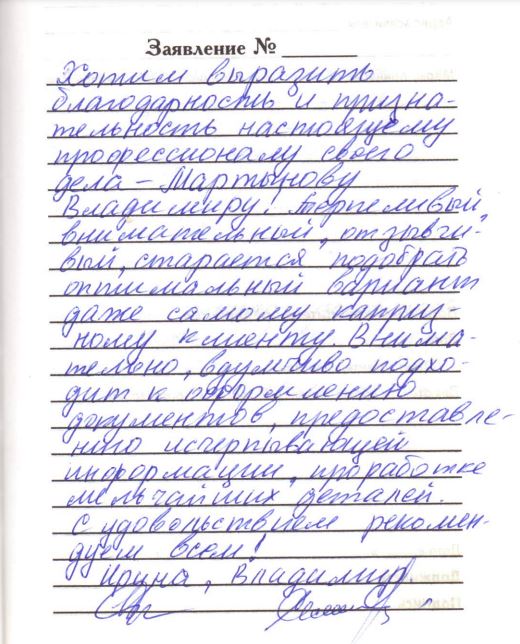 Заявление № ________
Хотим выразить
благодарность и призна-
тельность настоящему
профессионалу своего
дела – Мартынову
Владимиру. Терпеливый,
внимательный, отзывчи-
вый, старается подобрать
оптимальный вариант
даже самому каприз-
ному клиенту. Внима-
тельно, вдумчиво подхо-
дит к оформлению
документов, предоставле-
нию исчерпывающей
информации, проработке
мельчайших деталей.
С удовольствием рекомен-
дуем всем!
Ирина, Владимир